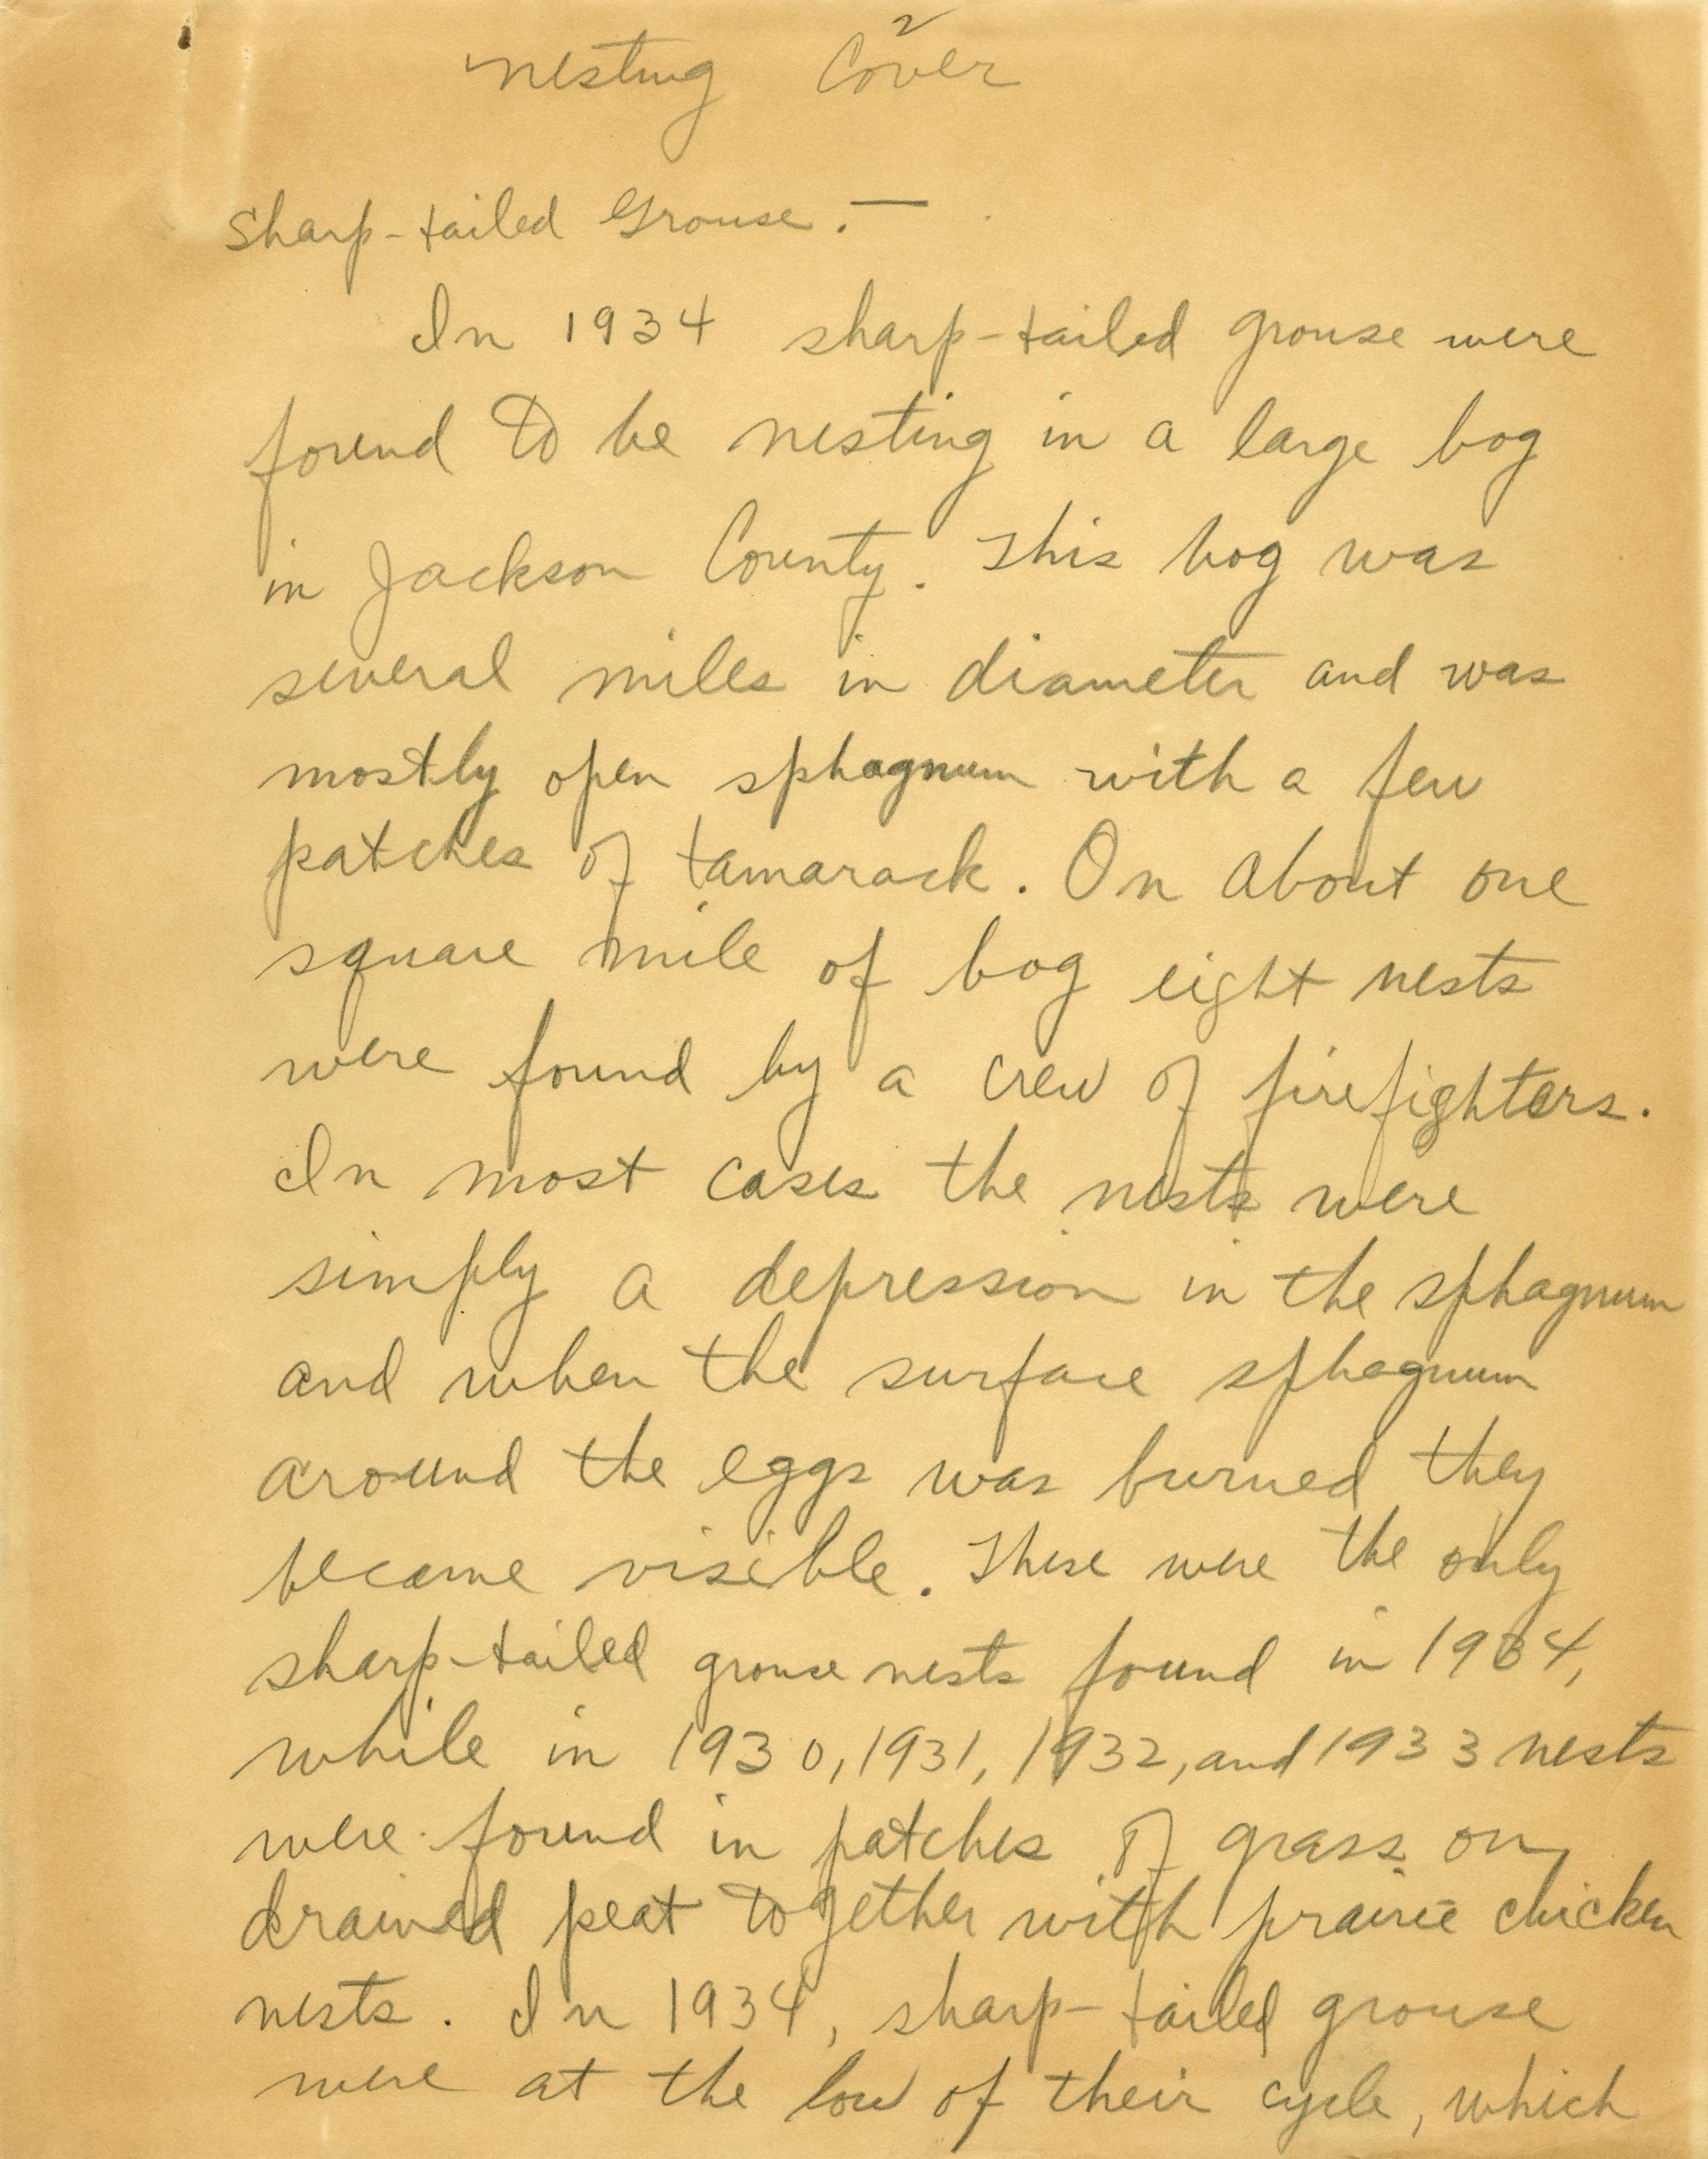 2
Nesting Cover
Sharp-tailed Grouse. —
In 1934 sharp-tailed grouse were
found to be nesting in a large bog
in Jackson County. This bog was
several miles in diameter and was
mostly open sphagnum with a few
patches of tamarack. On about one
square mile of bog eight nests
were found by a crew of firefighters.
In most cases the nests were
simply a depression in the sphagnum
and when the surface sphagnum
around the eggs was burned they
became visible. These were the only
sharp-tailed grouse nests found in 1934,
while in 1930, 1931, 1932, and 1933 nests
were found in patches of grass on
drained peat together with prairie chicken
nests. In 1934, sharp-tailed grouse
were at the low of their cycle, which